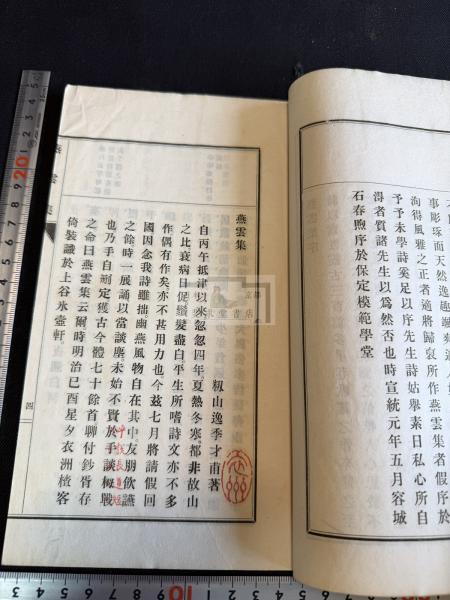 事彫琢而天然逸趣
洵得風雅之正者適將歸裒所作燕雲集者假序於
予予未學詩奚足以序先生詩姑舉素日私心所自
得者質諸先生以為然否也時宣統元年五月容城
石春煦序於保定模範學堂
燕雲集
糓山逸季才甫著
自丙午抵津以來忽忽四年夏熱冬寒都非故山
之比衰病日促鬢髮盡白平生所嗜詩文亦不多
作偶有作矣亦不甚用力也今玆七月將請假回
國因念我詩雖拙幽燕風物自在其中友朋飲讌
之餘時一展誦以當談麈未始不賢於手談極戰
也乃手自刪定獲古今體七十餘首聊付鈔胥存
之命曰燕雲集云爾時明治己酉星夕衣洲樁客
倚裝識於上谷氷壺軒
四